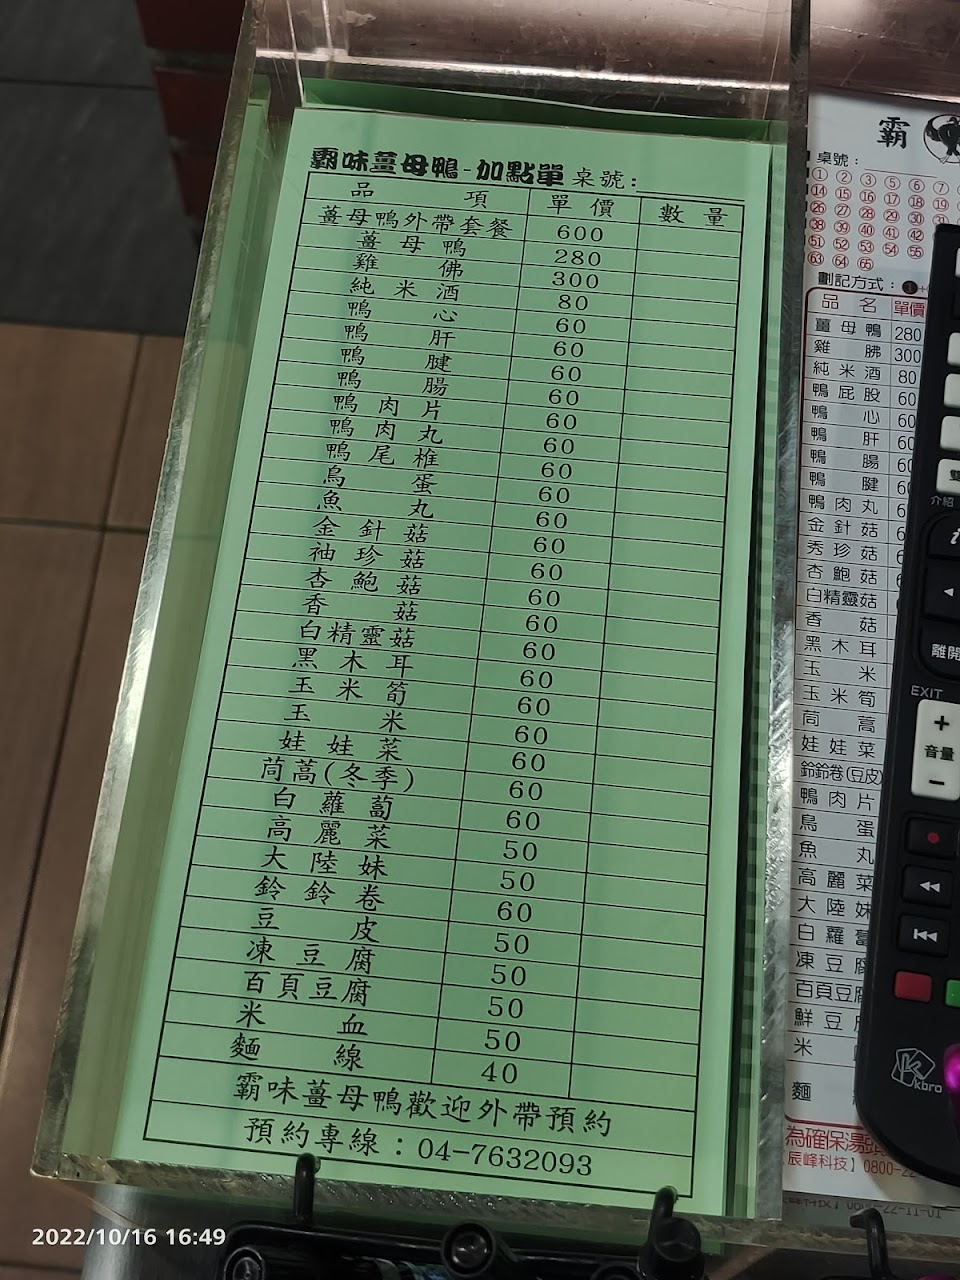 霸味薑母鴨-加點單 桌號:
品項 單價 數量
薑母鴨外帶套餐 600
薑母鴨 280
雞佛 300
純米酒 80
鴨心 60
鴨肝 60
鴨腱 60
鴨腸 60
鴨肉片 60
鴨肉丸 60
鴨尾椎 60
鳥蛋 60
魚丸 60
金針菇 60
袖珍菇 60
杏鮑菇 60
香菇 60
白精靈菇 60
黑木耳 60
玉米筍 60
玉米 60
娃娃菜 60
茼蒿(冬季) 60
白蘿蔔 60
高麗菜 50
大陸妹 50
鈴鈴卷 60
豆皮 50
凍豆腐 50
百頁豆腐 50
米血 50
麵線 40
霸味薑母鴨歡迎外帶預約
預約專線:04-7632093
霸
桌號:
① ② ③ ④ ⑤ ⑥ ⑦
14 15 16 17 18 19
26 27 28 29 30 31
38 39 40 41 42
51 52 53 54 55 56
63 64 65
劃記方式:
品名 單價
薑母鴨 280
雞胇 300
純米酒 80
鴨屁股 60
鴨心 60
鴨肝 60
鴨腸 60
鴨腱
鴨肉丸
金針菇
秀珍菇
杏鮑菇
白精靈菇
香菇
黑木耳
玉米
玉米筍
茼蒿
娃娃菜
鈴鈴卷(豆皮)
鴨肉片
鳥蛋
魚丸
高麗菜
大陸妹
白蘿蔔
凍豆腐
百頁豆腐
鮮豆
米
麵
為確保湯頭
辰峰科技】0800-22
介紹
離開
EXIT
+
音量
−
kbro
2022/10/16 16:49